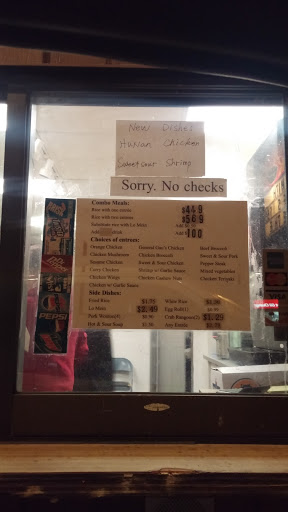 New Dishes
Hunan Chicken
Sweet sour Shrimp
Sorry. No checks
Combo Meals:
Rice with one entree $4.49
Rice with two entrees $5.69
Substitute rice with Lo Mein Add
Add drink Add $1.00
Choices of entrees:
Orange Chicken General Tso's Chicken Beef Broccoli
Chicken Mushroom Chicken Broccoli Sweet & Sour Pork
Sesame Chicken Sweet & Sour Chicken Pepper Steak
Curry Chicken Shrimp w/ Garlic Sauce Mixed vegetables
Chicken Wings Chicken Cashew Nuts Chicken Teriyaki
Chicken w/ Garlic Sauce
Side Dishes:
Fried Rice $1.75 White Rice
Lo Mein $2.49 Egg Roll(1)
Pork Wonton Crab Rangoon $1.29
Hot & Sour Soup
PEPSI